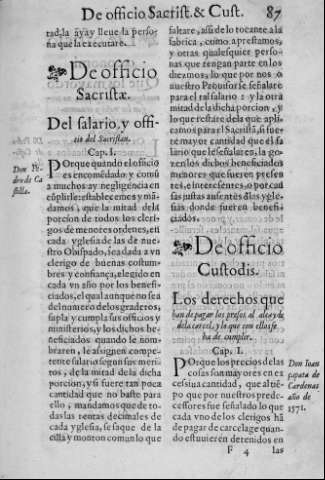 De officio Sacrist. & Cust. 87
rad, la ayay lleue la perso-
na que la executare.
De officio
Sacristæ.
Del salario, y offi-
tio del Sacristan.
Cap. I.
Don Pe-
dro de Ca
stilla.
Porque quando el officio
es encomẽdado y comũ
a muchos ay negligencia en
cũplirle: establecemos y mã-
damos, que la mitad de la
porcion de todos los cleri-
gos de menores ordenes, en
cada yglesia de las de nue-
stro Obispado, sea dada a vn
clerigo de buenas costum-
bres y confiança, elegido en
cada vn año por los benefi-
ciados, el qual aunque no sea
del numero de los graderos,
supla y cumpla sus officios y
ministerios, y los dichos be-
neficiados quando le nom-
braren, le assignen compe-
tente salario segun sus meri-
tos, de la mitad de la dicha
porcion, y si fuere tan poca
cantidad que no baste para
ello, mandamos que de to-
das las rentas decimales de
cada yglesia, se saque de la
cilla y monton comun lo que
faltare, assi de lo tocante a la
fabrica, como a prestamos,
y otras qualesquier perso-
nas que tengan parte en los
diezmos, lo que por nos o
nuestro Prouisor se señalare
para el tal salario: y la otra
mitad de la dicha porcion, y
lo que restare de la que apli-
camos para el Sacristã, si fue-
re mayor cantidad que el sa-
lario que le señalaren, la go-
zen los dichos beneficiados
menores que fueren presen-
tes, e interessentes, o por cau-
sas justas ausentes de las ygle-
sias donde fueren benefi-
ciados.
De officio
Custodis.
Los derechos que
han de pagar los presos al alcayde
de la carcel, y lo que con ellos se
ha de cumplir.
Cap. I.
Porque los precios de las
cosas son mayores en ex
cessiua cantidad, que al tiẽ-
po que por nuestros prede-
cessores fue señalado lo que
cada vno de los clerigos hã
de pagar de carcelage quan-
do estuuieren detenidos en
Don Iuan
papata de
Cardenas
año de
1571.
F 4 las